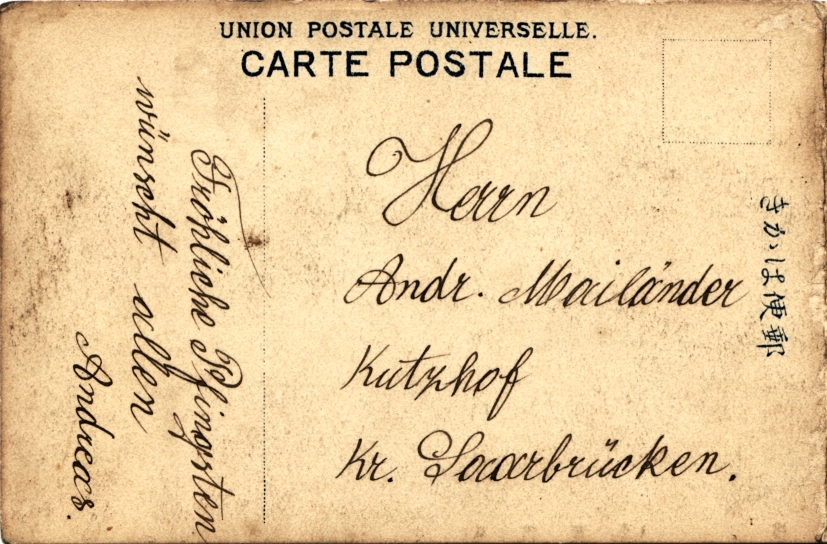 UNION POSTALE UNIVERSELLE.
CARTE POSTALE
Fröhliche Pfingsten
wünscht allen
Andreas.
Herrn
Andr. Mailänder
Kutzhof
Kr. Saarbrücken.
きかは便郵